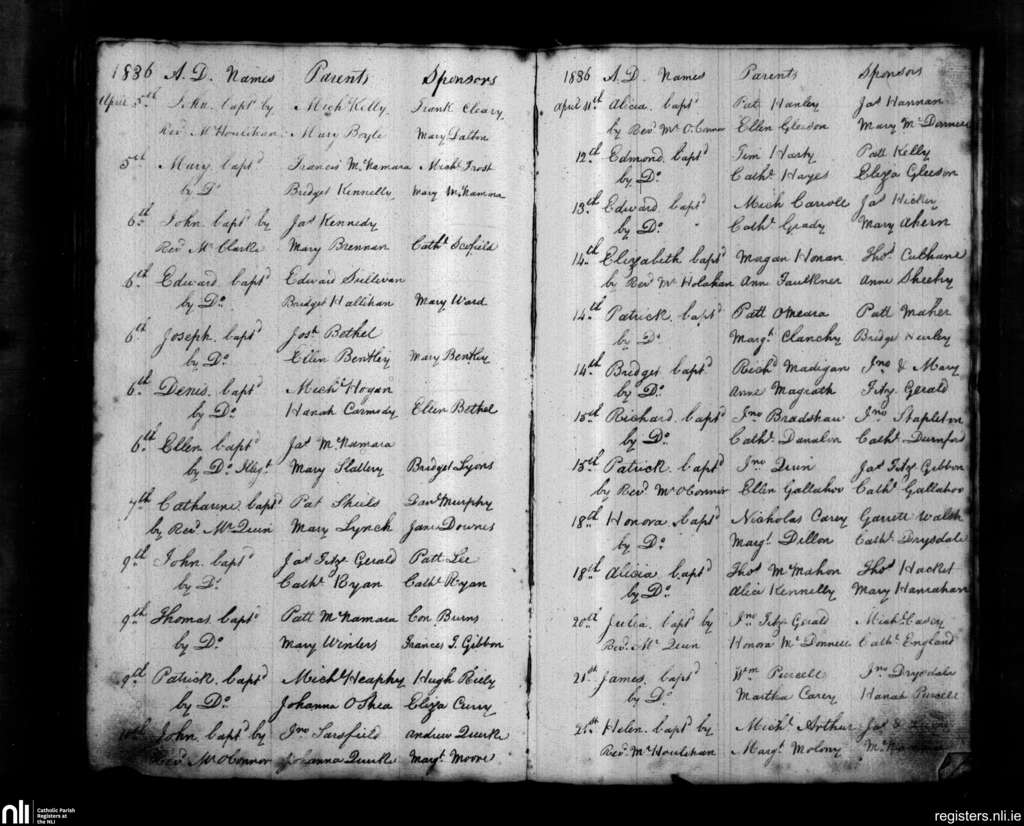 1836 A.D. Names Parents Sponsors
April 5th John bapt by Michl Kelly, Frank Cleary,
Revd Mr Houlihan Mary Boyle Mary Dalton
5th Mary baptd Francis McNamara Michl Frost
by Do Bridget Kennelly, Mary McNamara
6th John bapt by Jas Kennedy
Revd Mr Clarke Mary Brennan Cathe Scofield
6th Edward baptd Edward Sullivan
by Do Bridget Hallihan Mary Ward
6th Joseph baptd Josh Bethel
by Do Ellen Bentley Mary Bentley
6th Denis baptd Michl Hogan
by Do Hanah Carmody Ellen Bethel
6th Ellen baptd Jas McNamara
by Do Mary Slattery Bridget Lyons
7th Catharine baptd Pat Shiels Danl Murphy
by Revd Mr Quin Mary Lynch Jane Downes
9th John baptd Jas Fitz Gerald Patt Lee
by Do Cathe Ryan Cathe Ryan
9th Thomas baptd Patt McNamara Con Burns
by Do Mary Winters Frances F. Gibbon
9th Patrick baptd Michl Heaphy Hugh Riely
by Do Johanna O'Shea Eliza Curry
10th John bapt by Jno Sarsfield Andrew Quirke
Revd Mr O'Connor Johanna Quirke Margt Moore
1836 A.D. Names Parents Sponsors
April 11th Alicia baptd Pat Hanley Jas Hannan
by Revd Mr O'Connor Ellen Gleeson Mary McDonnell
12th Edmond baptd Tim Harty Patt Kelly
by Do Cathe Hayes Eliza Gleeson
13th Edward baptd Mich Carroll Jas Hickey
by Do Cathe Grady Mary Ahern
14th Elizabeth baptd Magan Honan Thos Culhane
by Revd Mr Holahan Ann Faulkner Anne Sheehy
14th Patrick baptd Patt OMeara Patt Maher
by Do Margt Clanchy Bridget Hurley
14th Bridget baptd Richd Madigan Jno & Mary
by Do Anne Magrath Fitz Gerald
15th Richard baptd Jno Bradshaw Jno Stapleton
by Do Cathe Danalon Cathe Durnford
15th Patrick baptd Jno Quin Jas Fitz Gibbon
by Revd Mr O'Connor Ellen Gallahoo Cathe Gallahoo
18th Honora baptd Nicholas Carey Garrett Walsh
by Do Margt Dillon Cathe Drysdale
18th Alicia baptd Thos McMahon Thos Hacket
by Do Alice Kennelly Mary Hanrahan
20th Julia bapt by Jno Fitz Gerald Mich Casey
Revd Mr Quin Honora McDonnell Cathe England
21st James baptd Wm Purcell Jno Drysdale
by Do Martha Carey Hanah Purcell
Helen bapt by Michl Arthur Jas &
Revd Mr Houlihan Margt Molony
nli Catholic Parish
Registers at
the NLI
registers.nli.ie